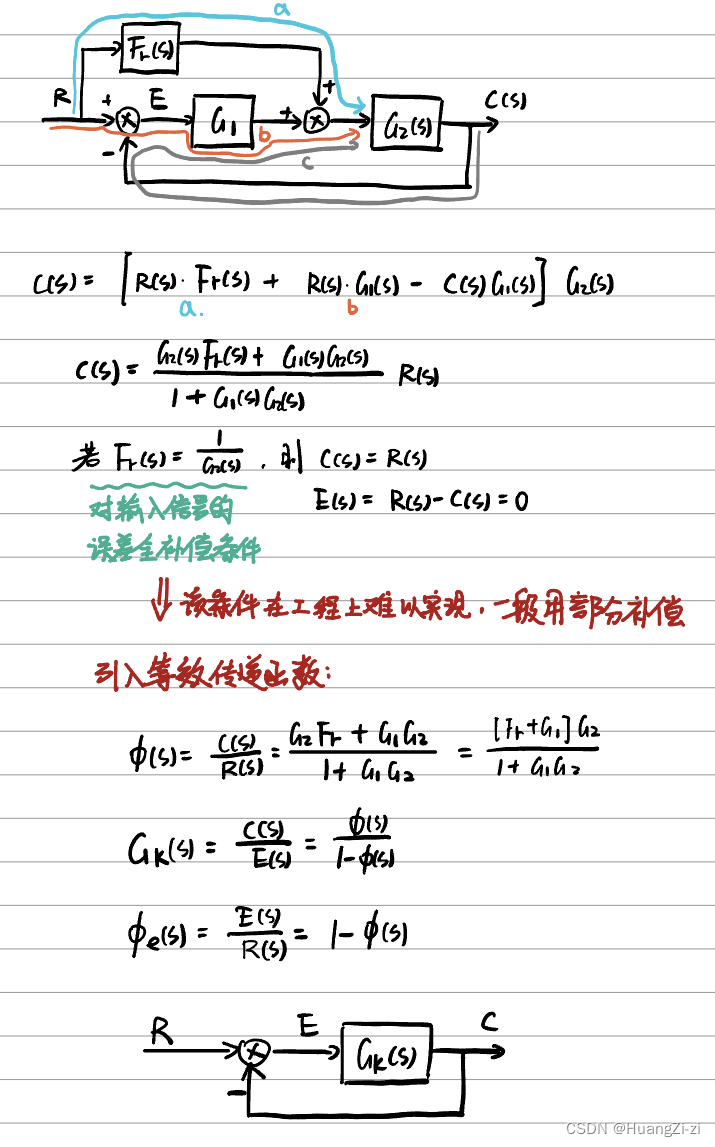 a
Fr(s)
R + E G1 + + G2(s) C(s)
b
- c
C(s) = [R(s)·Fr(s) + R(s)·G1(s) - C(s)G1(s)] G2(s)
a. b
C(s) = \frac{G2(s)Fr(s) + G1(s)G2(s)}{1 + G1(s)G2(s)} R(s)
若 Fr(s) = \frac{1}{G2(s)}, 则 C(s) = R(s)
对输入信号的 E(s) = R(s) - C(s) = 0
误差全补偿条件
⇓ 该条件在工程上难以实现, 一般用部分补偿
引入等效传递函数:
ϕ(s) = \frac{C(s)}{R(s)} = \frac{G2Fr + G1G2}{1 + G1G2} = \frac{[Fr+G1]G2}{1 + G1G2}
GK(s) = \frac{C(s)}{E(s)} = \frac{ϕ(s)}{1-ϕ(s)}
ϕe(s) = \frac{E(s)}{R(s)} = 1 - ϕ(s)
R E GK(s) C
-
CSDN @HuangZi-zi